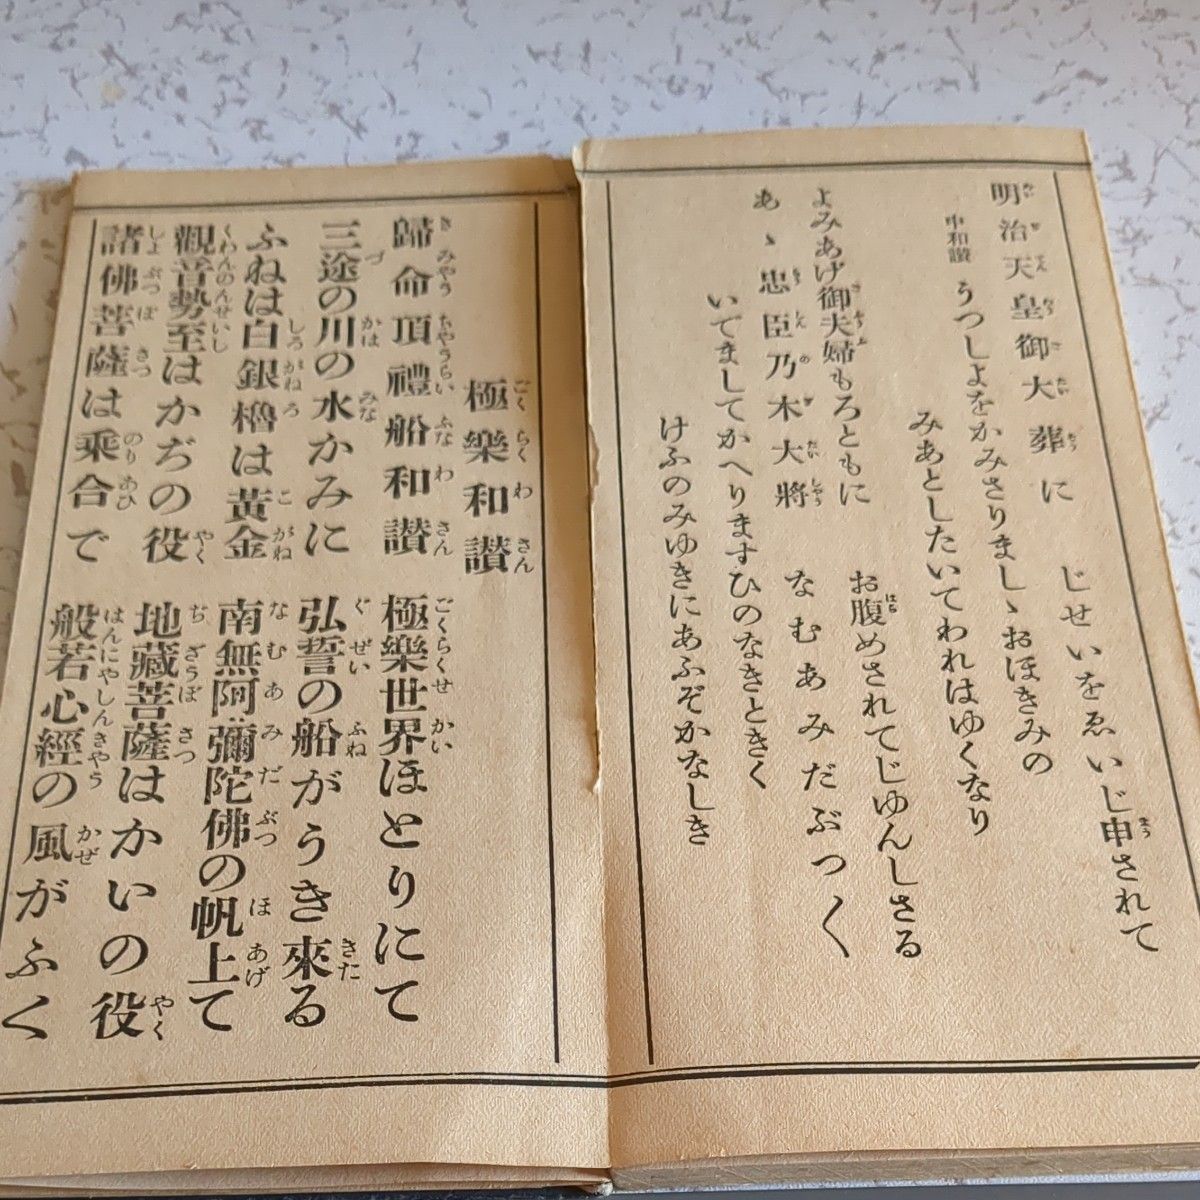 明治天皇御大葬に　じせいをゑいじ申されて
中和讃　うつしよをかみさりましゝおほきみの
みあとしたいてわれはゆくなり
よみあげ御夫婦もろともに　お腹めされてじゆんしさる
あゝ忠臣乃木大將　なむあみだぶつ〱
いでましてかへりますひのなきときく
けふのみゆきにあふぞかなしき
極樂和讃
歸命頂禮船和讃　極樂世界ほとりにて
三途の川の水かみに　弘誓の船がうき來る
ふねは白銀櫓は黃金　南無阿彌陀佛の帆上て
觀音勢至はかぢの役　地藏菩薩はかいの役
諸佛菩薩は乘合で　般若心經の風がふく